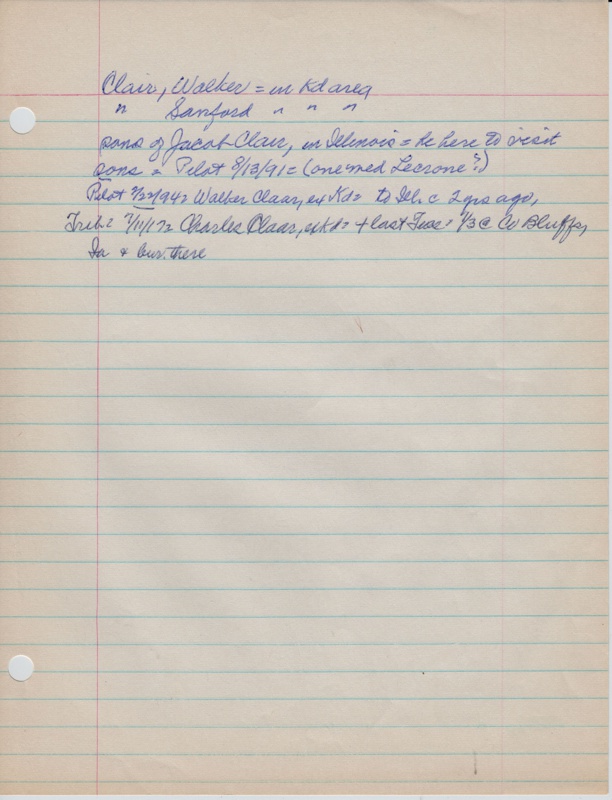 Clair, Walker = in Kd area
" Sanford " " "
sons of Jacob Clair, in Illinois = he here to visit
sons = Pilot 8/13/91 = (one med Lecrone?)
Pilot 2/22/94 = Walker Claar, ex Kd = to Ill. c 2 yrs ago,
Trib = 7/11/1 = Charles Claar, ex Kd = + last Tues = 1/3 @ Co Bluffs,
Ia & bur. there